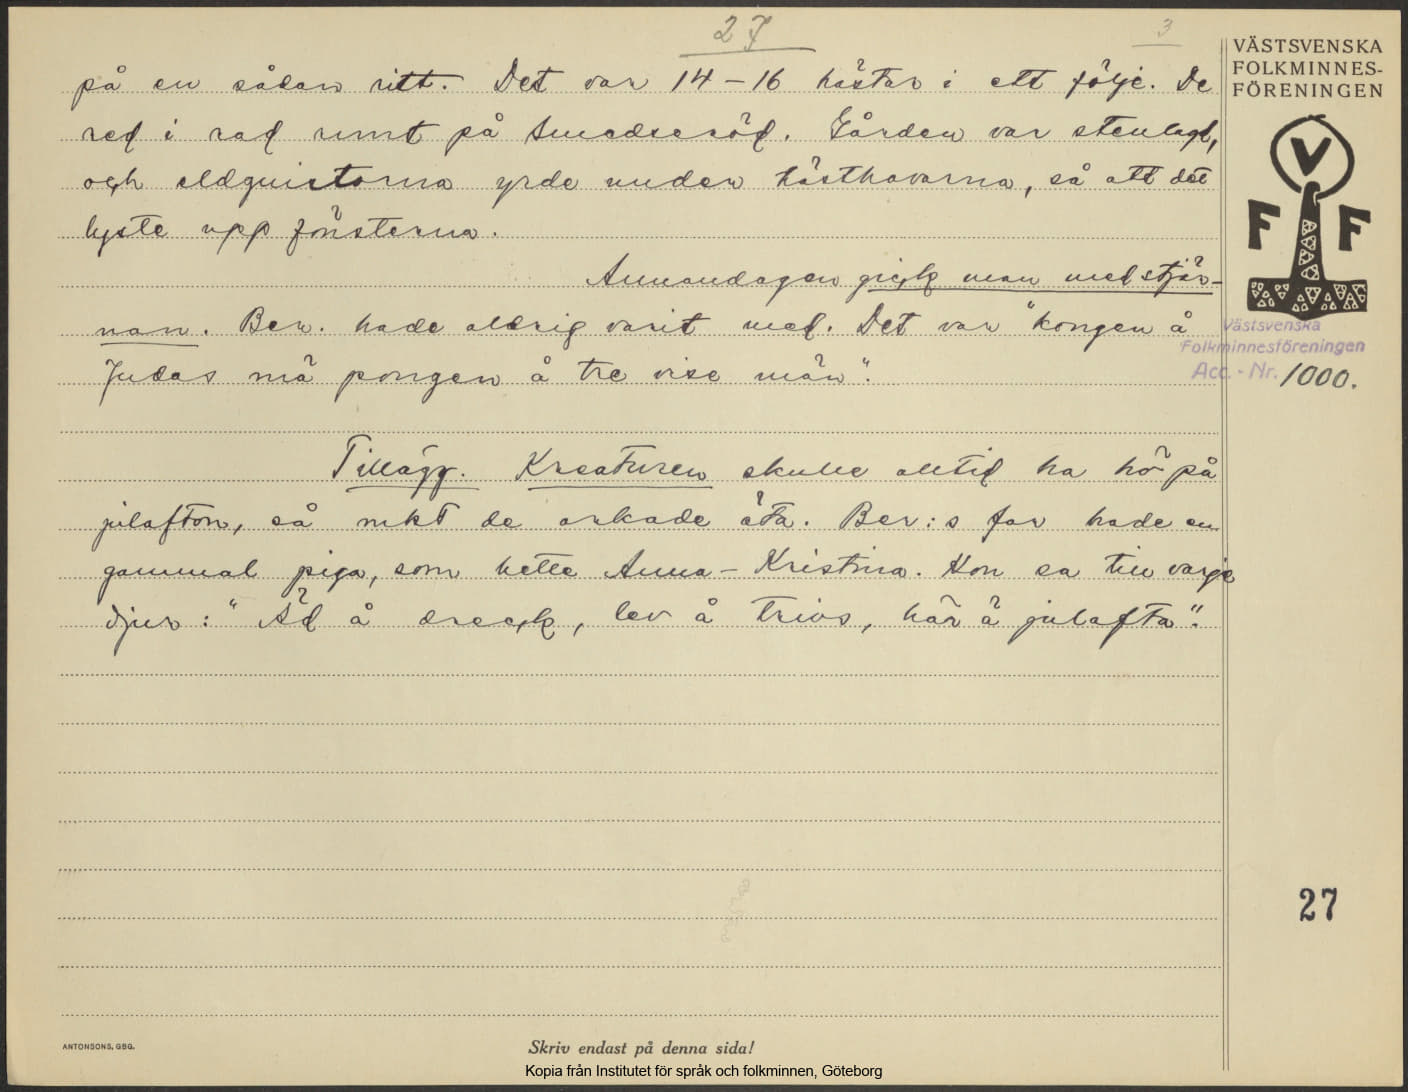 27
3
på en sådan ritt. Det var 14–16 hästar i ett följe. De
red i rad runt på Smedseröd. Gården var stenlagd,
och eldgnistorna yrde under hästhovarna, så att det
lyste upp fönsterna.
Annandagen gick man med stjär-
nan. Ber. hade aldrig varit med. Det var "kongen å
Judas mä pongen å tre vise män".
Tillägg. Kreaturen skulle alltid ha hö på
julafton, så mkt de orkade äta. Ber:s far hade en
gammal piga, som hette Anna-Kristina. Hon sa till varje
djur: "Äd å dreck, lev å trivs, här ä julafta".
VÄSTSVENSKA
FOLKMINNES-
FÖRENINGEN
V
F F
Västsvenska
Folkminnesföreningen
Acc.-Nr. 1000.
27
ANTONSONS, GBG.
Skriv endast på denna sida!
Kopia från Institutet för språk och folkminnen, Göteborg